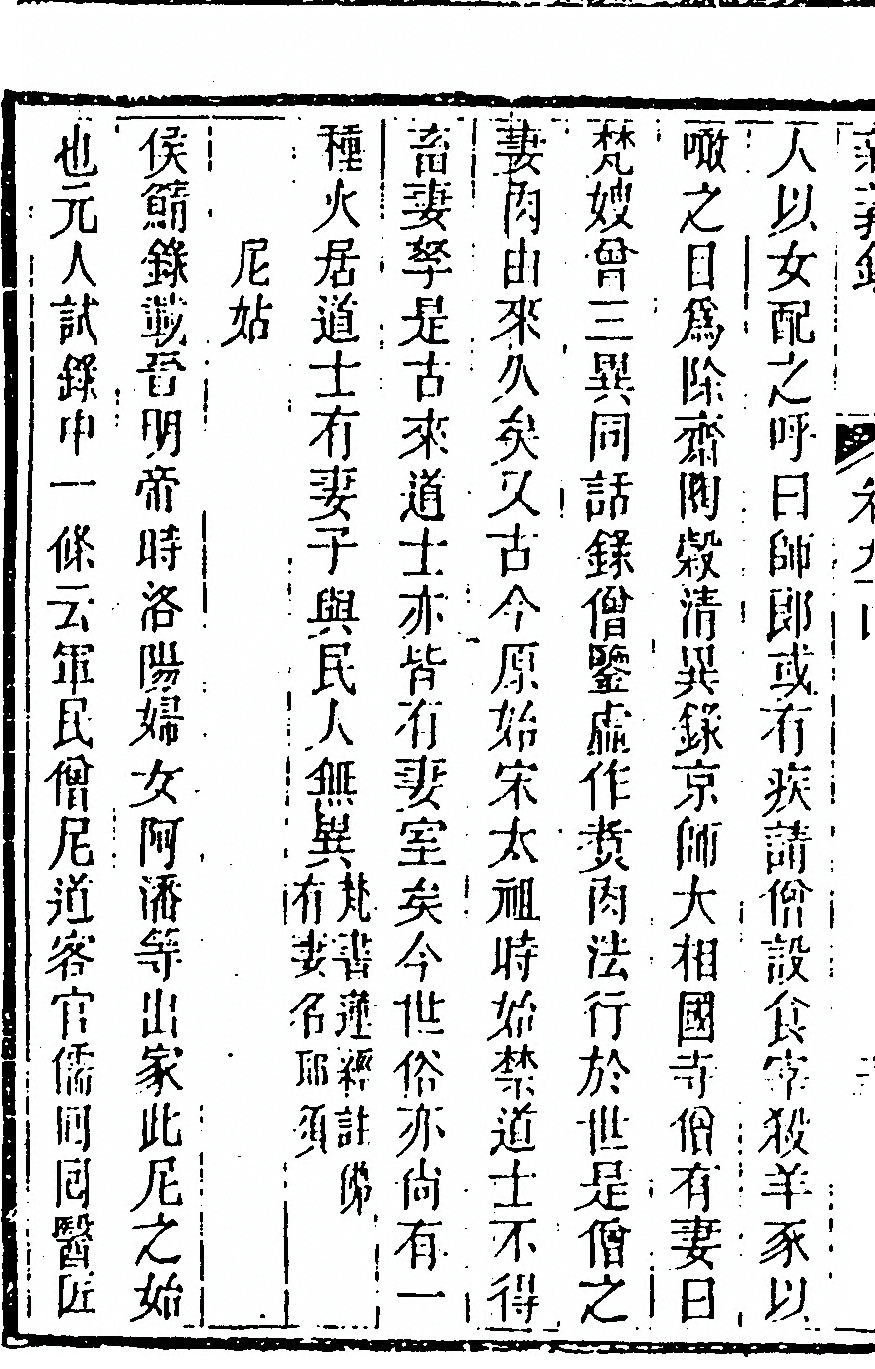 人以女配之呼曰師郎或有疾請僧設食宰殺羊豕以
噉之目爲除齋陶穀清異錄京師大相國寺僧有妻曰
梵嫂曾三異同話錄僧鑒虛作煑肉法行於世是僧之
妻肉由來久矣又古今原始宋太祖時始禁道士不得
畜妻孥是古來道士亦皆有妻室矣今世俗亦尚有一
種火居道士有妻子與民人無異梵書蓮經註僧
有妻名耶須
尼姑
侯鯖錄載晉明帝時洛陽婦女阿潘等出家此尼之始
也元人試錄中一條云軍民僧尼道客官儒回回醫匠